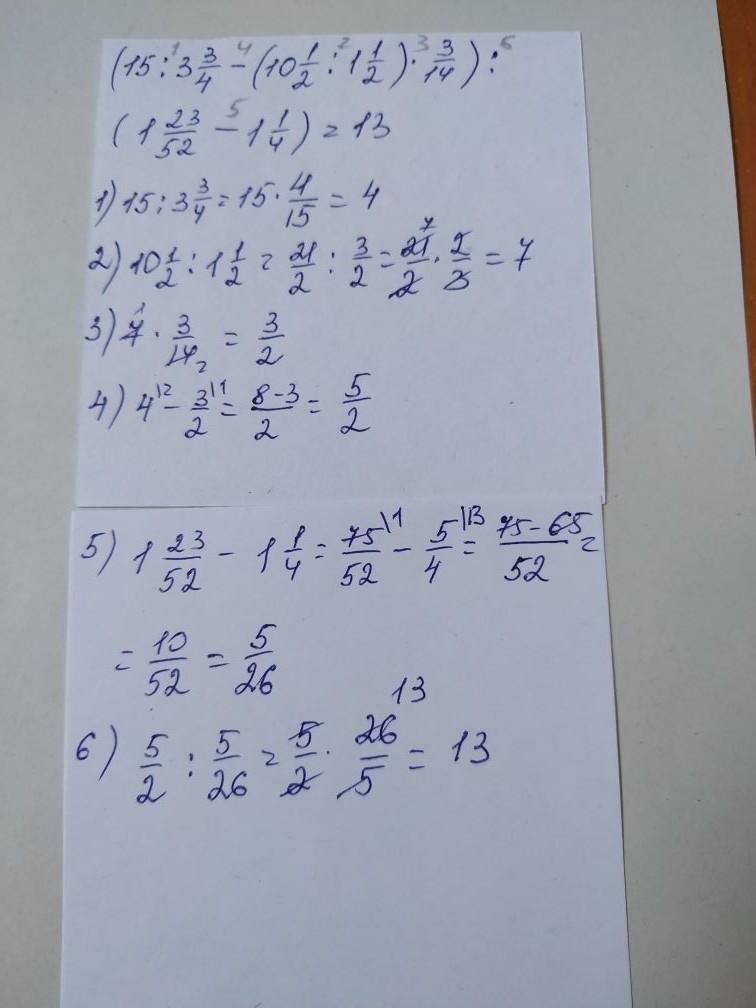 (15 : 3 3/4 - (10 1/2 : 1 1/2) · 3/14) :
(1 23/52 - 1 1/4) = 13
1) 15 : 3 3/4 = 15 · 4/15 = 4
2) 10 1/2 : 1 1/2 = 21/2 : 3/2 = 21/2 · 2/3 = 7
3) 7 · 3/14 = 3/2
4) 4 \2 - 3/2 \1 = 8-3/2 = 5/2
5) 1 23/52 - 1 1/4 = 75/52 \1 - 5/4 \13 = 75-65/52 =
= 10/52 = 5/26
6) 5/2 : 5/26 = 5/2 · 26/5 = 13